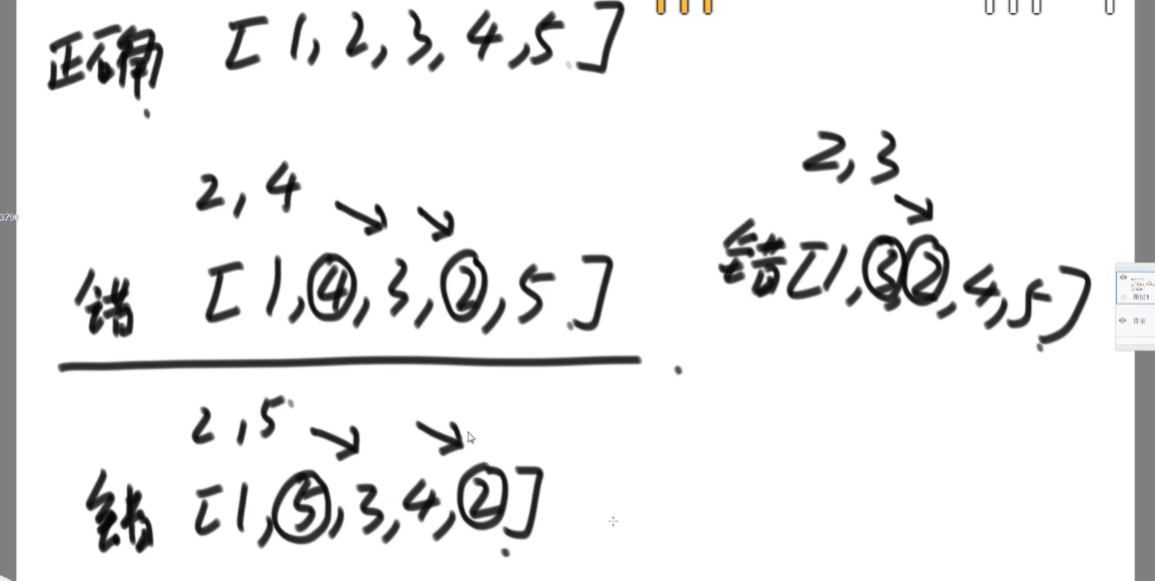 正确 [1,2,3,4,5]
2,4
错 [1,④,3,②,5]
2,3
错[1,③②,4,5]
2,5
错 [1,⑤,3,4,②]
3796
图层1
背景